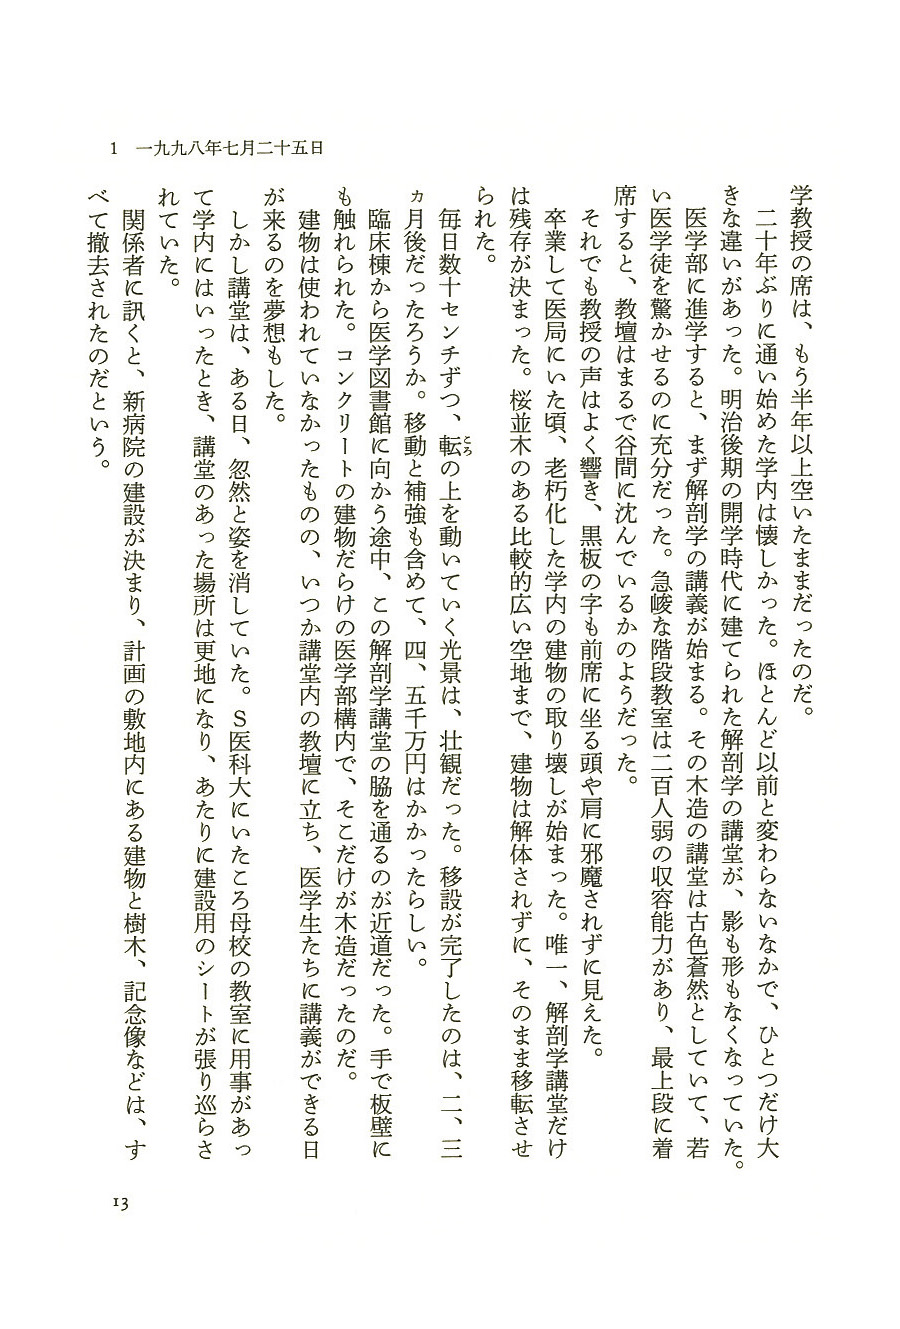 1　一九九八年七月二十五日
学教授の席は、もう半年以上空いたままだったのだ。
　二十年ぶりに通い始めた学内は懐しかった。ほとんど以前と変わらないなかで、ひとつだけ大
きな違いがあった。明治後期の開学時代に建てられた解剖学の講堂が、影も形もなくなっていた。
　医学部に進学すると、まず解剖学の講義が始まる。その木造の講堂は古色蒼然としていて、若
い医学徒を驚かせるのに充分だった。急峻な階段教室は二百人弱の収容能力があり、最上段に着
席すると、教壇はまるで谷間に沈んでいるかのようだった。
　それでも教授の声はよく響き、黒板の字も前席に坐る頭や肩に邪魔されずに見えた。
　卒業して医局にいた頃、老朽化した学内の建物の取り壊しが始まった。唯一、解剖学講堂だけ
は残存が決まった。桜並木のある比較的広い空地まで、建物は解体されずに、そのまま移転させ
られた。
　毎日数十センチずつ、転の上を動いていく光景は、壮観だった。移設が完了したのは、二、三
ころ
ヵ月後だったろうか。移動と補強も含めて、四、五千万円はかかったらしい。
　臨床棟から医学図書館に向かう途中、この解剖学講堂の脇を通るのが近道だった。手で板壁に
も触れられた。コンクリートの建物だらけの医学部構内で、そこだけが木造だったのだ。
　建物は使われていなかったものの、いつか講堂内の教壇に立ち、医学生たちに講義ができる日
が来るのを夢想もした。
　しかし講堂は、ある日、忽然と姿を消していた。Ｓ医科大にいたころ母校の教室に用事があっ
て学内にはいったとき、講堂のあった場所は更地になり、あたりに建設用のシートが張り巡らさ
れていた。
　関係者に訊くと、新病院の建設が決まり、計画の敷地内にある建物と樹木、記念像などは、す
べて撤去されたのだという。
13